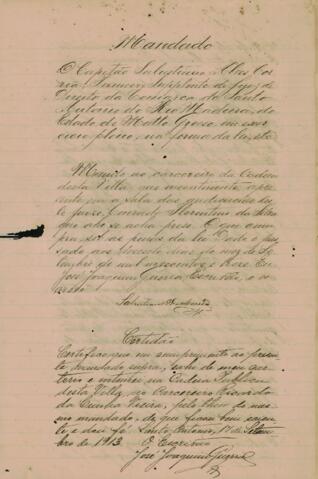 Mandado
O Capitão Salustiano Alves Cor
rea, Primeiro Supplente do Juiz de
Direito da Comarca de Santo
Antonio do Rio Madeira, do
Estado de Matto Grosso em exer
cicio pleno, na forma da lei, etc
Mando ao carcereiro da Cadeia
desta Villa, que incontinente apre
sente na sala das audiencias des
te juizo, Florentino da Silva
que ahi se acha preso. O que cum
pra, sob as penas da lei. Dado e pas
sado aos doze dias do mez de Se
tembro de mil novecentos e treze. Eu
José Joaquim Escrivão, o es
crevi
Certidão
Certifico que em cumprimento ao presen
te mandado supra, sahi do meu car
torio e intimei na Cadeia Publica
desta Villa, ao Carcereiro Ricardo
da Cunha Vieira, pelo theor do mes
mo mandado, de que ficou bem scien
te e dou fé Santo Antonio, de Setem
bro de 1913. O Escrivão
José Joaquim